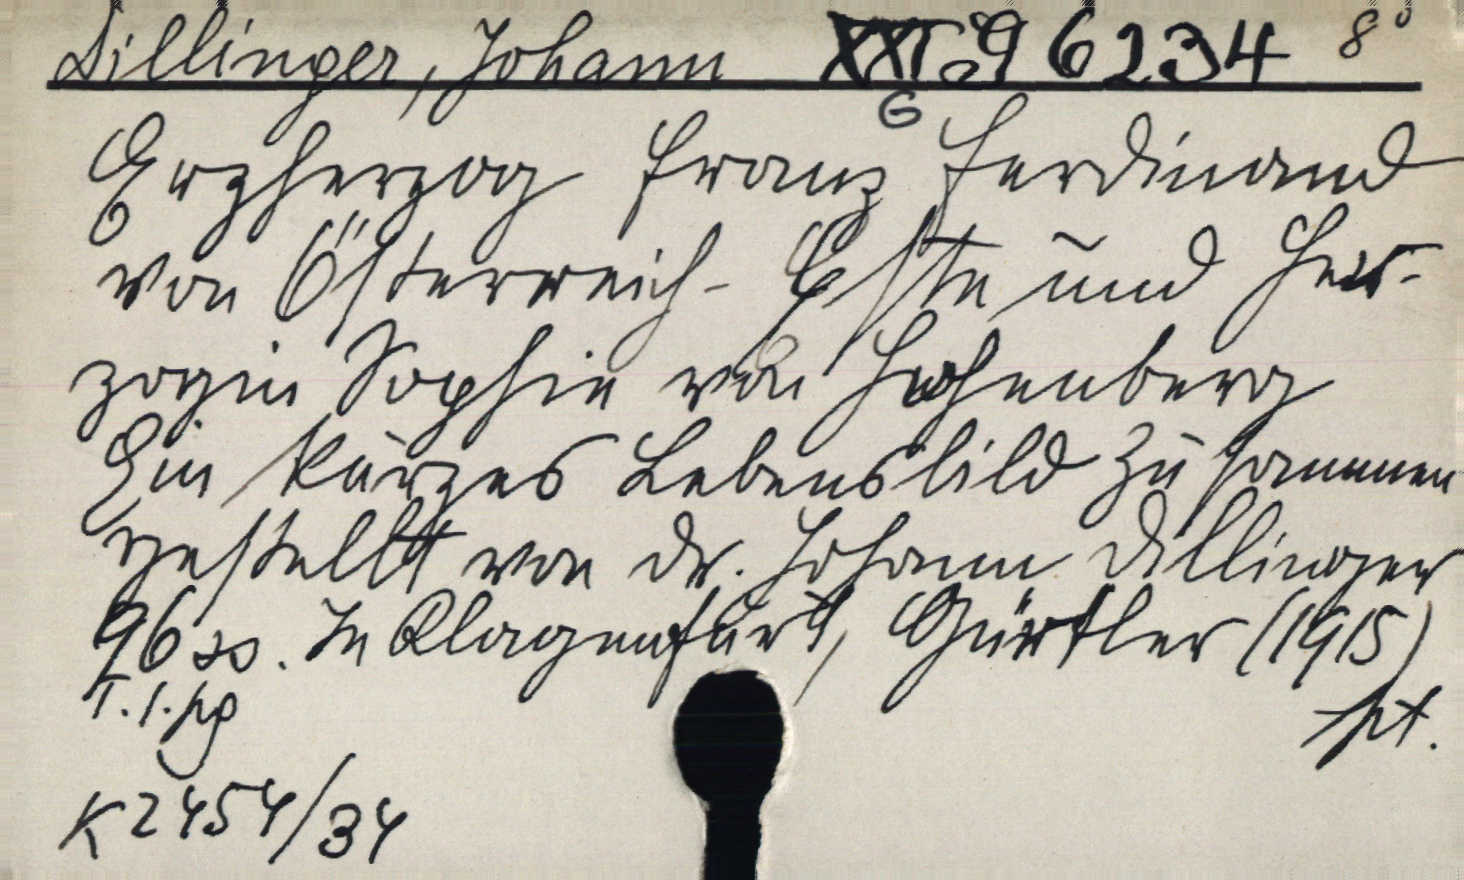 Dillinger, Johann XXI. G 96234 8°
Erzherzog Franz Ferdinand
von Österreich-Este und Her-
zogin Sophie von Hohenberg
Ein kurzes Lebensbild zusammen
gestellt von Dr. Johann Dillinger
96 ss. In Klagenfurt, Gürtler (1915)
T. 1. pg
pt.
K 2454/34